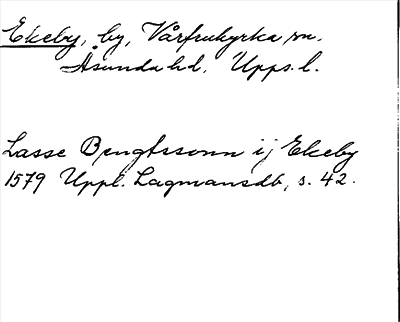 Ekeby, by, Vårfrukyrka sn.
Åsunda hd. Upps. l.
Lasse Bengtssonn ij Ekeby
1579 Uppl. Lagmansdb, s. 42.